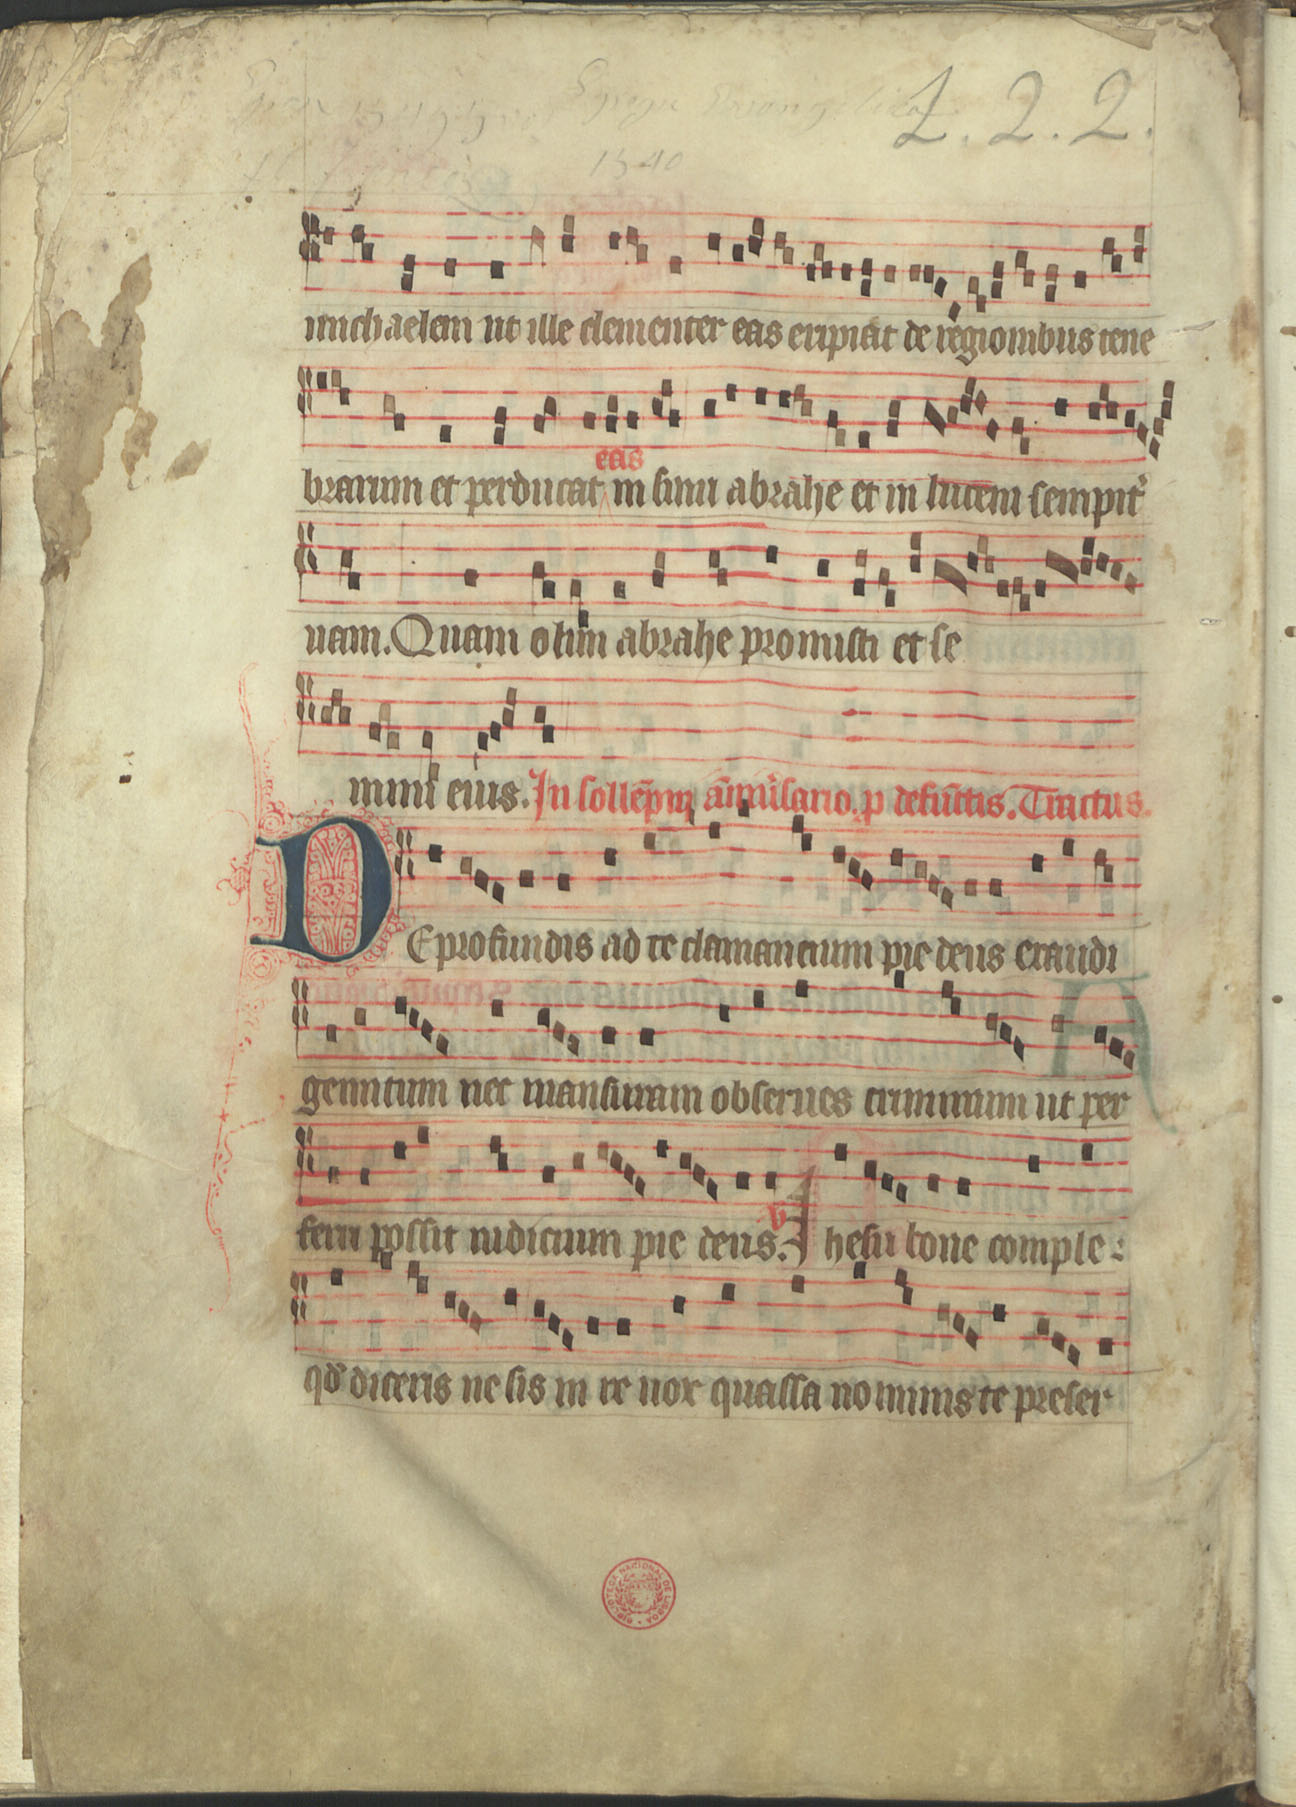 2.2.2.
1540
michaelem ut ille clementer eas eripiat de regionibus tene
brarum et perducat in sinu abrahe et in lucem sempit᾽
eas
uam. Quam olim abrahe promisti et se
mini eius. In sollẽpni ãniũsario. p defũctis. Tractus.
DE profundis ad te clamancium pie deus exaudi
gemitum nec mansuram obserues criminum ut per
ferri possit iudicium pie deus. v̄ Ihesu bone comple
qd̓ diceris ne sis in re nox quassa nominis te preser
BIBLIOTECA NACIONAL DE LISBOA